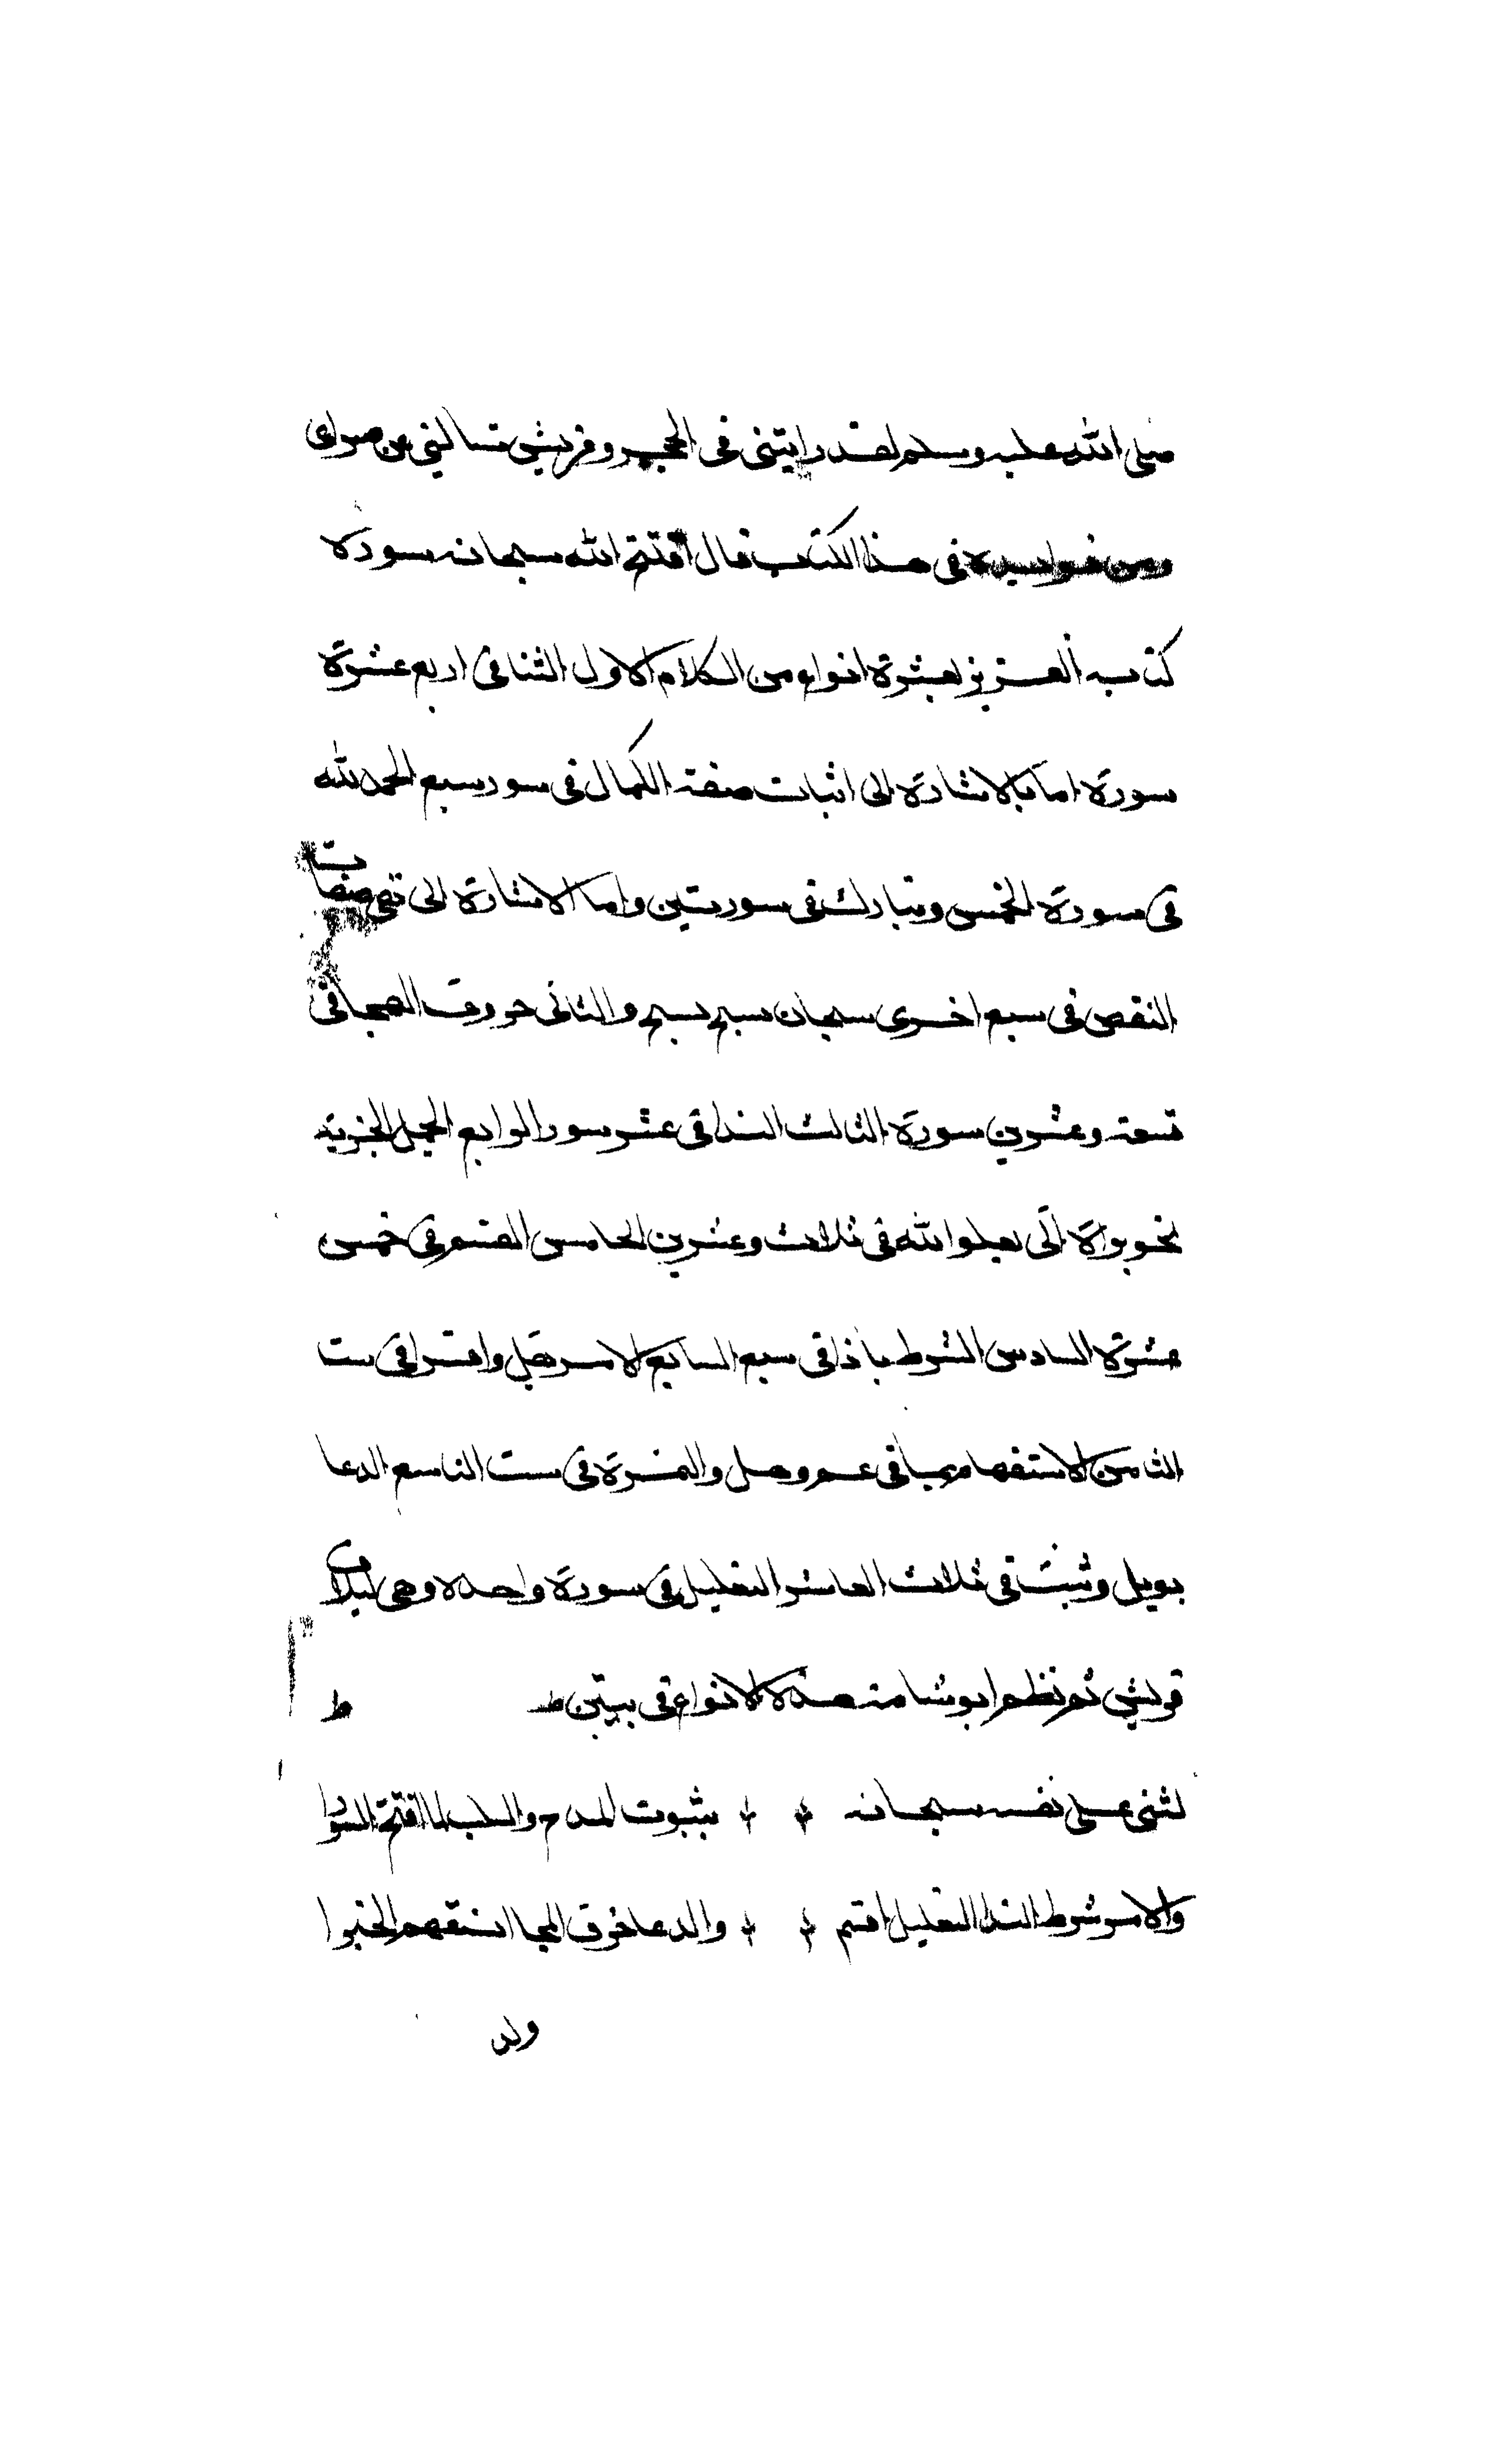 صلى الله عليه وسلم لقد رايتنى فى الحجر وقريش تسالني عن مسراى
ومن فوايده فى هذا الكتاب قال افتتح الله سبحانه سورة
كتابه العزيز بعشرة انواع من الكلام الاول الثنا فى اربع عشرة
سورة اما بالاشارة الى اثبات صفة الكمال فى سور سبع الحمد لله
فى سورة الخمس وتبارك فى سورتين واما الاشارة الى نفى صفات
النقص فى سبع اخرى سبحان سبح يسبح والثانى حروف الهجا فى
تسعة وعشرين سورة الثالث الندا فى عشر سور الرابع الجمل الخبرية
نحو براة اتى يعلوا الله فى ثلاث وعشرين الخامس القسم فى خمس
عشرة السادس الشرط باذا فى سبع السابع الامر بقل واقرا فى ست
الثامن الاستفهام بما فى عم وهل والهمزة فى ست التاسع الدعا
بويل وتبت فى ثلاث العاشر التعليل فى سورة واحده وهى لئلاف
قريش ثم نظم ابو شامة هذه الانواع فى بيتين
اثنى على نفسه سبحانه بثبوت المدح والسلب لما افتتح السورا
والامر شرط الندا التعليل اقسم والدعا حروف الهجا استفهم الخبرا